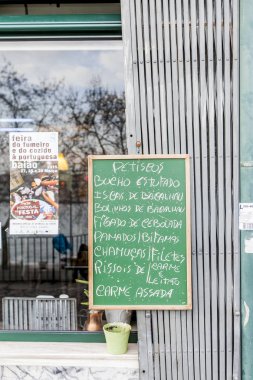 feira
do fumeiro
e do cozido
à portuguesa
baião
PETISCOS
BUCHO ESTUFADO
ISCAS DE BACALHAU
BOLINHOS DE BACALHAU
FÍGADO DE CEBOLADA
PANADOS/BIFANAS
CHAMUÇAS/FILETES
RISSOIS DE CARNE
E
LEITÃO
CARNE ASSADA
FESTA